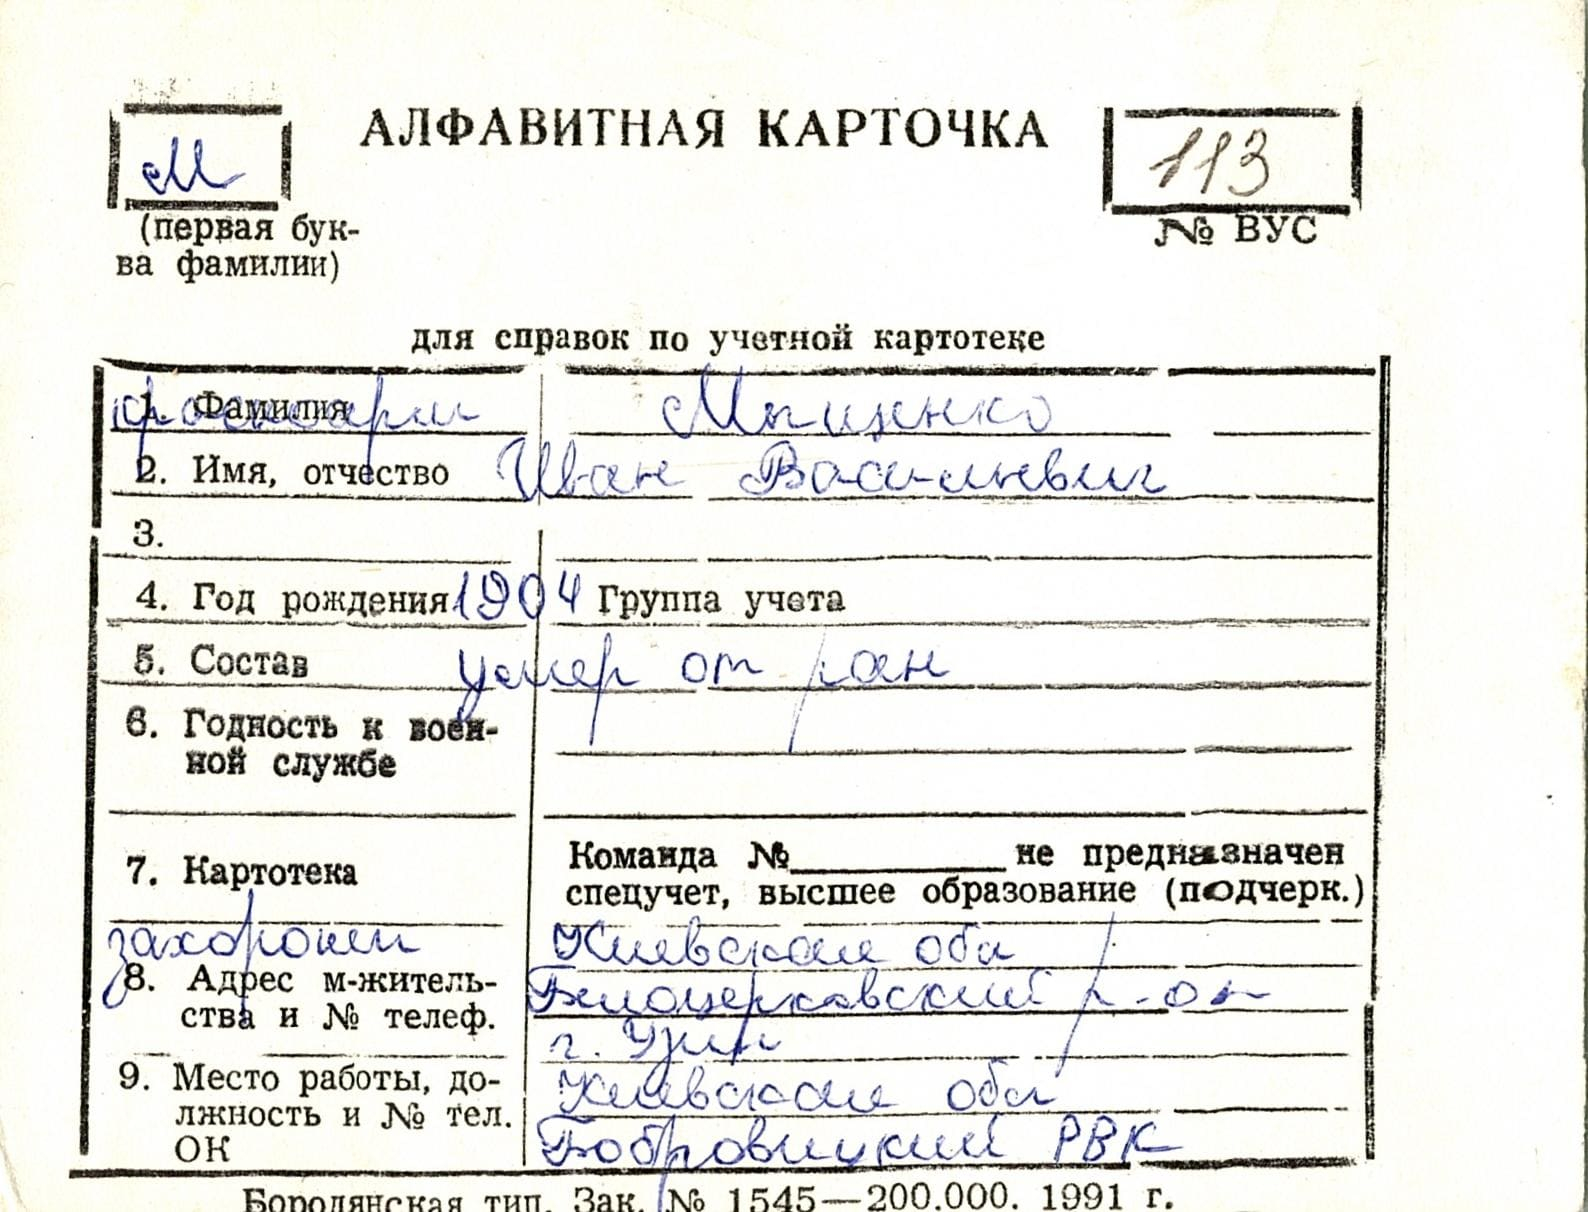 М
АЛФАВИТНАЯ КАРТОЧКА
113
(первая бук-
ва фамилии)
№ ВУС
для справок по учетной картотеке
1. Фамилия Мыценко
2. Имя, отчество Иван Васильевич
3.
4. Год рождения 1904 Группа учета
5. Состав умер от ран
6. Годность к воен-
ной службе
7. Картотека
Команда №__________ не предназначен
спецучет, высшее образование (подчерк.)
захоронен Киевская обл
8. Адрес м-житель-
ства и № телеф.
Белоцерковский р-он
г.
9. Место работы, до-
лжность и № тел.
ОК
Киевская обл
Бобровицкий РВК
Бородянская тип. Зак. № 1545—200.000. 1991 г.